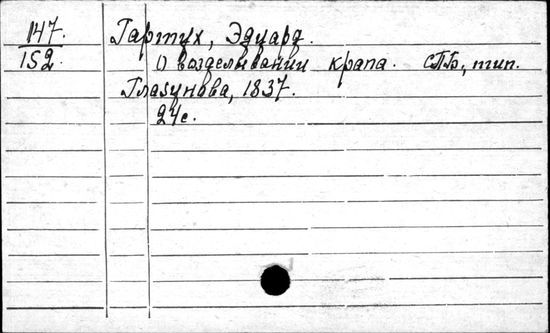 147. Гартух, Эдуард.
152. О возделывании крапа. СПБ, тип.
Глазунова, 1837.
24с.